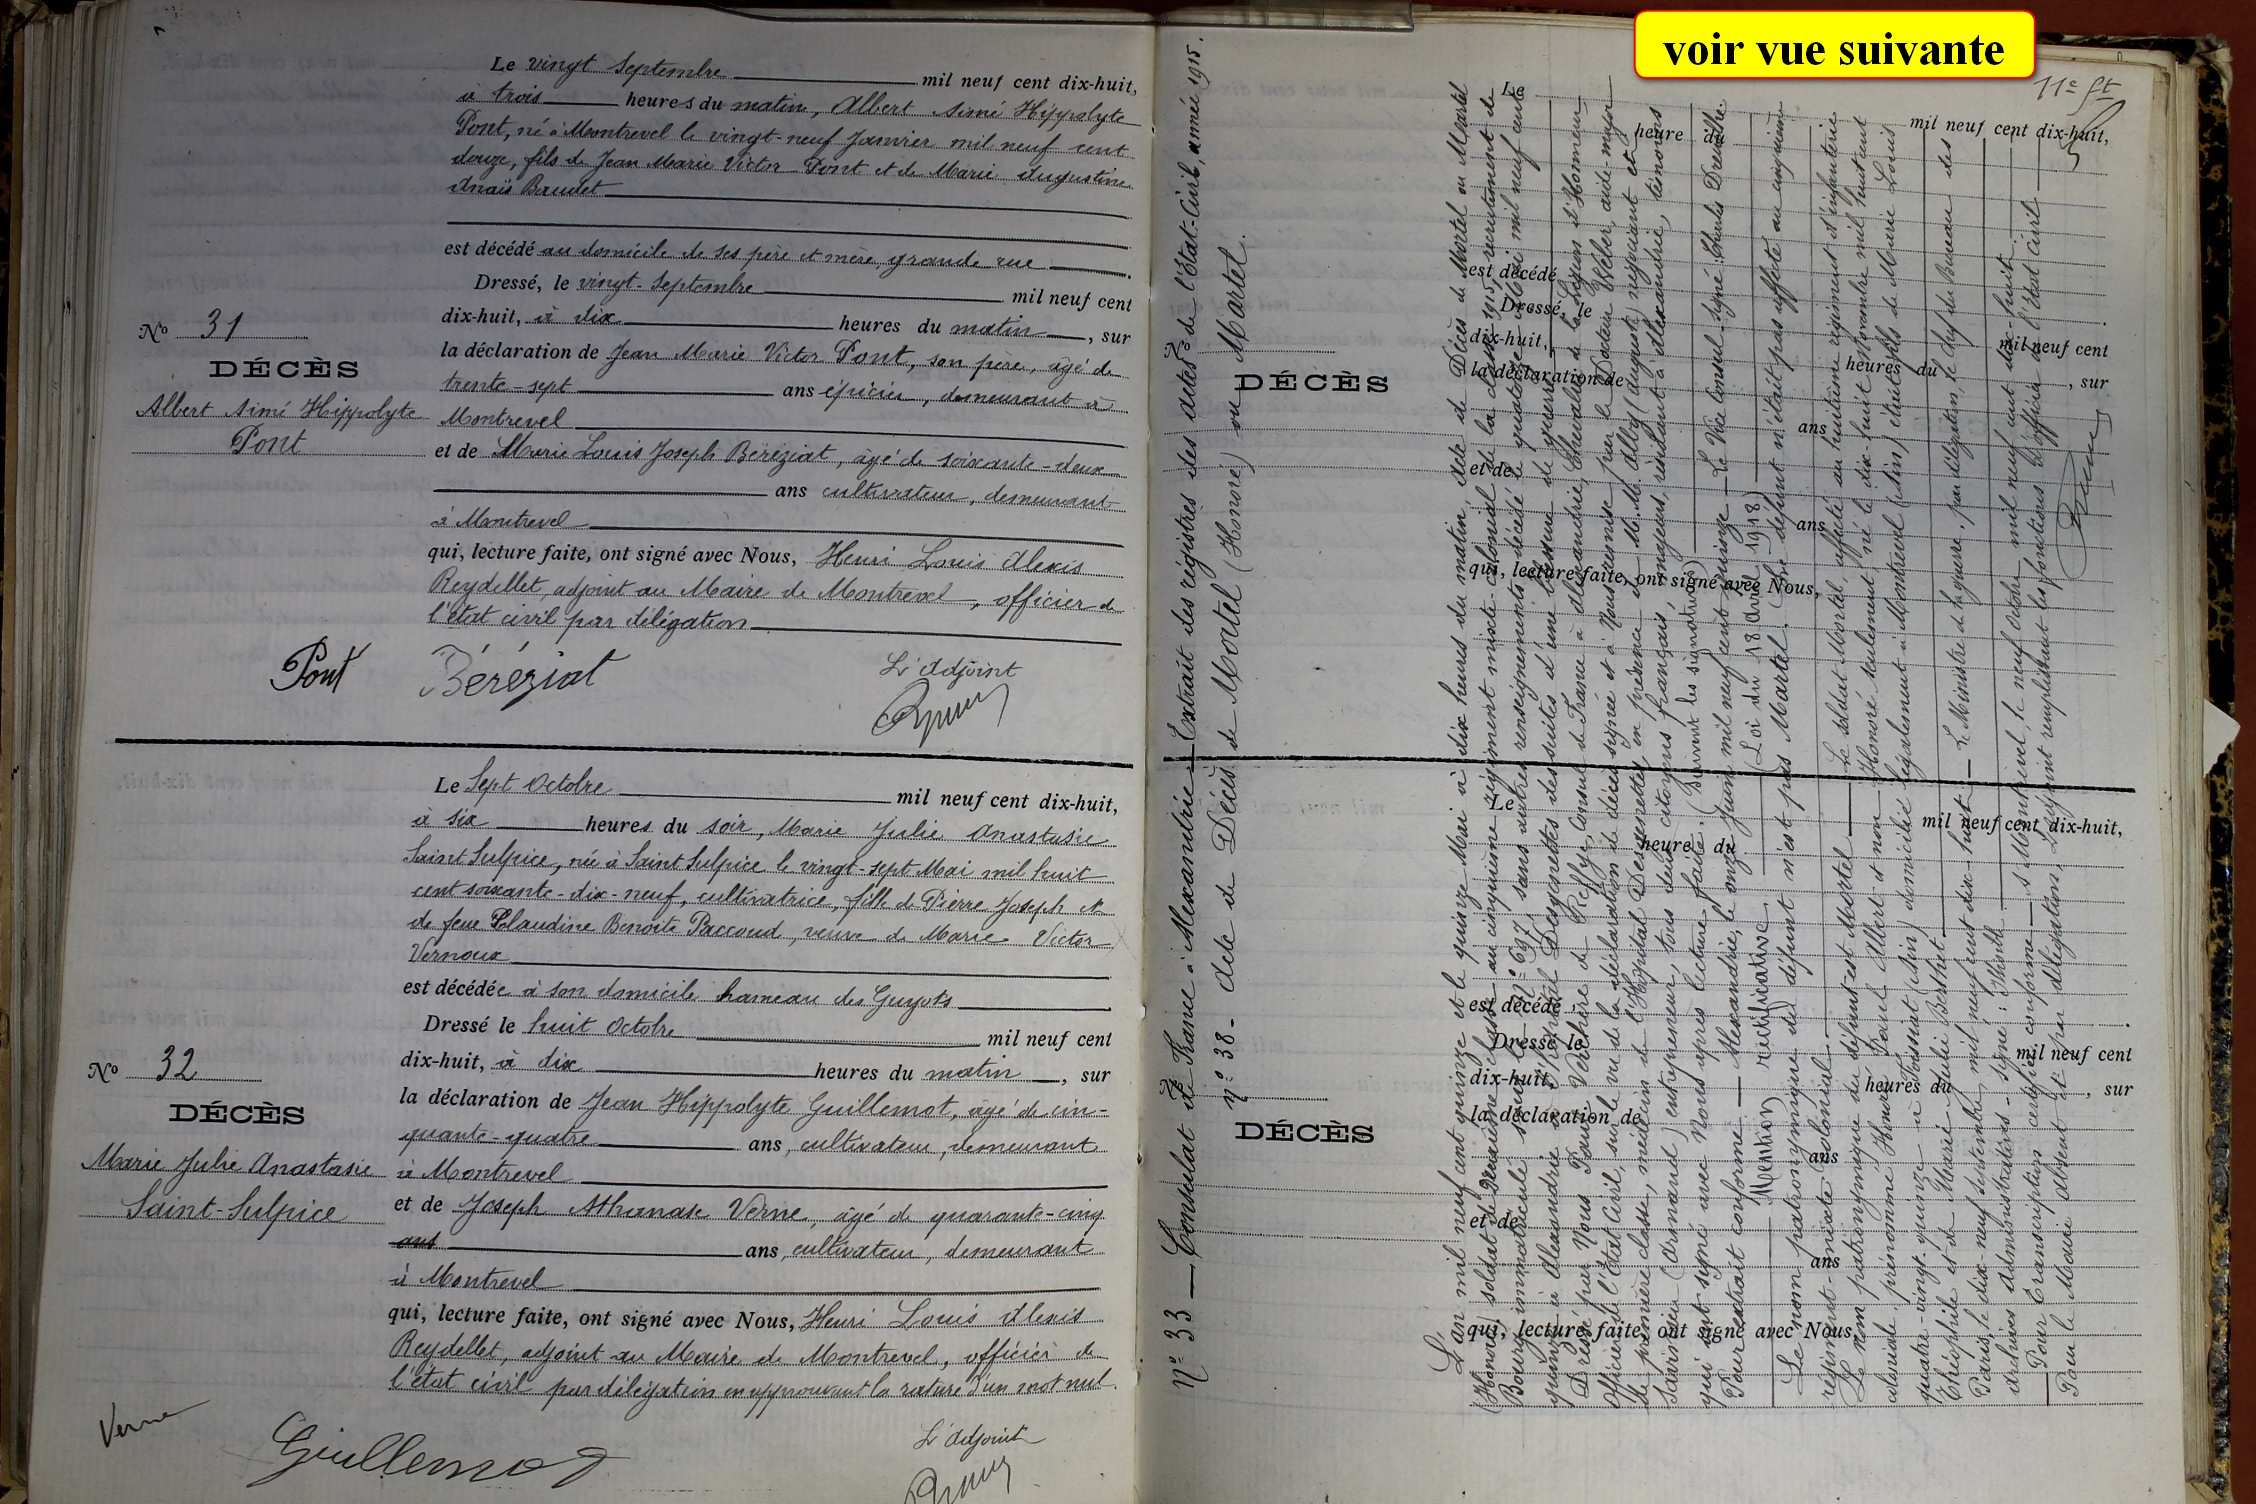 voir vue suivante
Le vingt septembre mil neuf cent dix-huit,
à trois heures du matin, Albert Aimé Hippolyte
Pont, né à Montrevel le vingt-neuf Janvier mil neuf cent
douze, fils de Jean Marie Victor Pont et de Marie Augustine
Anaïs Baudet
est décédé au domicile de ses père et mère, grande rue
Dressé, le vingt-septembre mil neuf cent
dix-huit, à dix heures du matin, sur
la déclaration de Jean Marie Victor Pont, son père, âgé de
trente-sept ans épicier, demeurant à
Montrevel
et de Marie Louis Joseph Béréziat, âgé de soixante-deux
ans cultivateur, demeurant
à Montrevel
qui, lecture faite, ont signé avec Nous, Henri Louis Alexis
Reydellet, adjoint au Maire de Montrevel, officier de
l'état civil par délégation
No 31
DÉCÈS
Albert Aimé Hippolyte
Pont
Pont Béréziat L'adjoint
Le Sept Octobre mil neuf cent dix-huit,
à six heures du soir, Marie Julie Anastasie
Saint Sulpice, née à Saint Sulpice le vingt-sept Mai mil huit
cent soixante-dix-neuf, cultivatrice, fille de Pierre Joseph et
de feue Claudine Benoîte Paccoud, veuve de Marie Victor
Vernoux
est décédée à son domicile hameau des Guyots
Dressé le huit Octobre mil neuf cent
dix-huit, à dix heures du matin, sur
la déclaration de Jean Hippolyte Guillemot, âgé de cin-
quante-quatre ans, cultivateur, demeurant
à Montrevel
et de Joseph Athanase Verne, âgé de quarante-cinq
ans ans, cultivateur, demeurant
à Montrevel
qui, lecture faite, ont signé avec Nous, Henri Louis Alexis
Reydellet, adjoint au Maire de Montrevel, officier de
l'état civil par délégation en approuvant la rature d'un mot nul.
No 32
DÉCÈS
Marie Julie Anastasie
Saint-Sulpice
Verne Guillemot L'adjoint
11e ft
No 33 — Consulat de France à Alexandrie — Extrait des registres des actes de l'Etat-Civil, année 1915.
No 38 - Acte de Décès de Mortel (Honoré) ou Martel.
L'an mil neuf cent quinze et le quinze Mai à dix heures du matin, Acte de Décès de Mortel ou Martel
(Honoré) soldat de deuxième classe au cinquième régiment mixte colonial de la classe 1915, recrutement de
Bourg, immatricule No 697 sans autres renseignements décédé le quatorze Mai mil neuf cent
quinze à Alexandrie à l'hôpital Desgenettes des suites d'une blessure de guerre.
Dressé par Nous Paul Verchère de Reffye, Consul de France à Alexandrie, Chevalier de la Légion d'Honneur
Officier de l'Etat Civil, sur le vu de la déclaration de décès signée et à Nous remise par le Docteur aide-major
de première classe, médecin de l'Hôpital Desgenettes, en présence de M.M. Alby (Auguste) négociant et
(Armand) entrepreneur, tous deux citoyens français, majeurs, résidant à Alexandrie, témoins
qui ont signé avec Nous après lecture faite. (Suivent les signatures)
Pour extrait conforme — Alexandrie, le onze Juin mil neuf cent quinze — Le Vice Consul signé Charles
Mention rectificative (Loi du 18 Avril 1918)
Le nom patronymique du défunt n'est pas Martel. Le défunt n'était pas affecté au cinquième
régiment mixte Colonial.
Le nom patronymique du défunt est Mortel. Le soldat Mortel, affecté au huitième régiment d'infanterie
coloniale, prénommé Honoré Paul Albert et non Honoré seulement, né le dix-huit Novembre mil huit cent
quatre-vingt-quinze à Toussiat (Ain) domicilié légalement à Montrevel (Ain) était fils de Marie Louis
Théophile et de Marie Julie Berthet
Paris, le dix-neuf septembre mil neuf cent dix-huit — Le Ministre de la guerre, par délégation, le chef du Bureau des
archives administratives - signé :
Pour transcription certifiée conforme — à Montrevel, le neuf Octobre mil neuf cent dix-huit
Pour le Maire absent et par délégation, l'adjoint remplissant les fonctions d'officier de l'état civil
Le mil neuf cent dix-huit,
heure du
est décédé
Dressé, le mil neuf cent
dix-huit, heures du , sur
la déclaration de
ans
et de
ans
qui, lecture faite, ont signé avec Nous,
No
DÉCÈS
Le mil neuf cent dix-huit,
heure du
est décédé
Dressé le mil neuf cent
dix-huit, heures du , sur
la déclaration de
ans
et de
ans
qui, lecture faite, ont signé avec Nous,
No
DÉCÈS